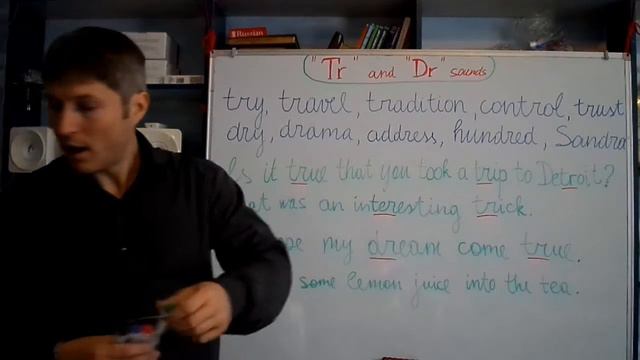 Russian
"Tr" and "Dr" sounds
try, travel, tradition, control, trust
dry, drama, address, hundred, Sandra
Is it true that you took a trip to Detroit?
was an interesting trick.
my dream come true.
some lemon juice into the tea.